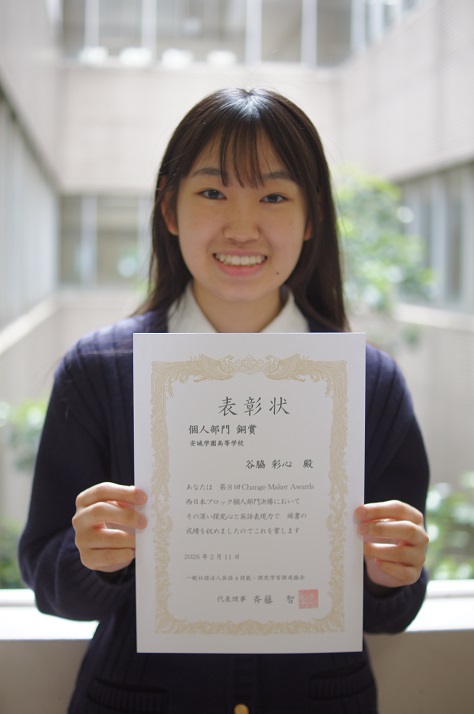 表彰状
個人部門 銅賞
安城学園高等学校
谷脇 彩心 殿
あなたは 第8回Change Maker Awards
西日本ブロック個人部門決勝において
その深い探究心と英語表現力で 頭書の
成績を収めましたのでこれを賞します
2026年2月11日
一般社団法人英語4技能・探究学習推進協会
代表理事 斉藤 智